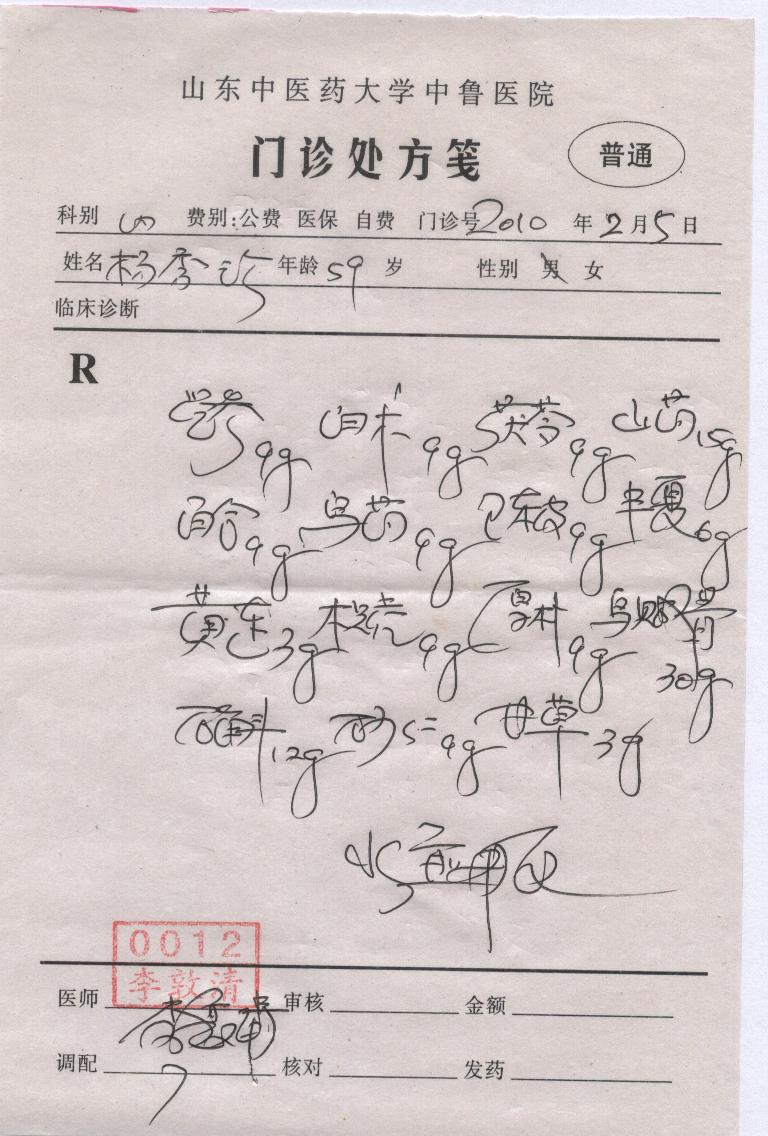 山东中医药大学中鲁医院
门诊处方笺 普通
科别 内 费别:公费 医保 自费 门诊号 2010 年 2 月 5 日
姓名 杨秀 年龄 59 岁 性别 男 女
临床诊断
R
9g 白术 9g 茯苓 9g 山药 15g
百合 9g 乌药 9g 陈皮 9g 半夏 6g
黄连 3g 木 9g 厚朴 9g 乌贼骨 30g
12g 砂仁 9g 甘草 3g
水煎服
0012
李敦清
医师 李敦清 审核 金额
调配 核对 发药